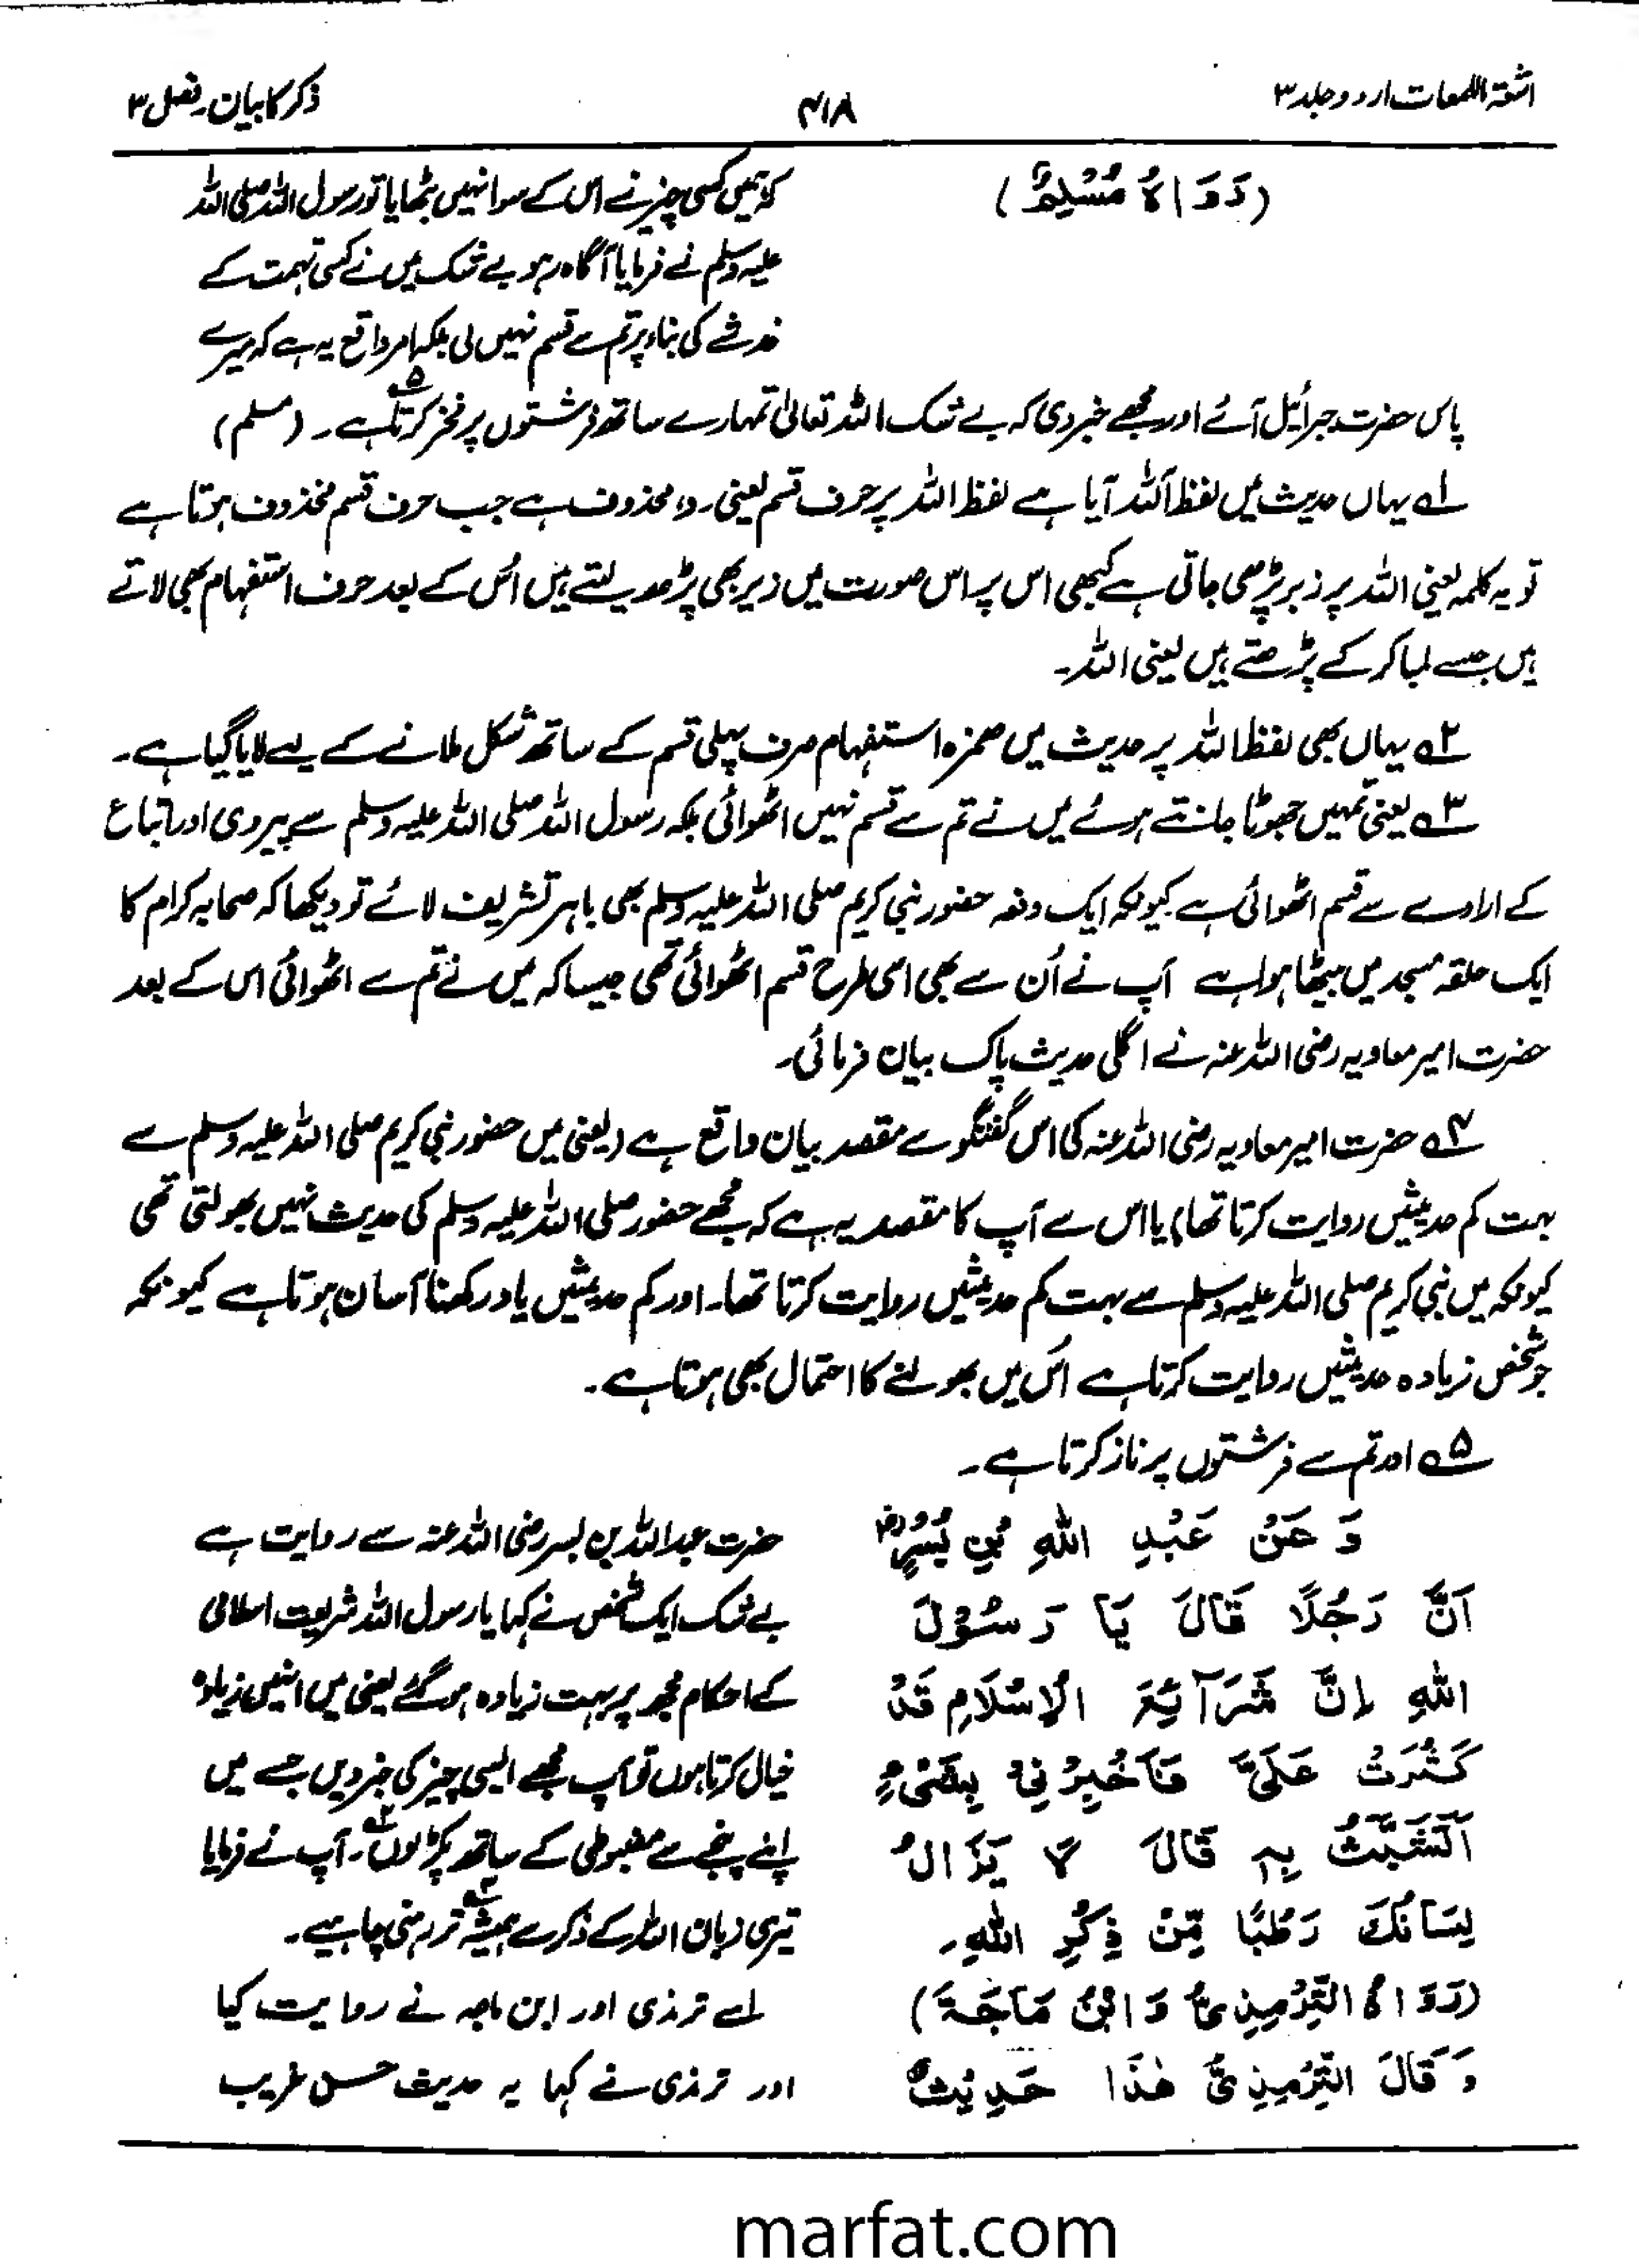 اشعۃ اللمعات اردو جلد ۳
۴۱۸
ذکر کا بیان۔ فصل ۳
(رَوَاهُ مُسْلِمٌ)
کہ ہمیں کسی چیز نے اس کے سوا نہیں بٹھایا تو رسول اللہ صلی اللہ
علیہ وسلم نے فرمایا آگاہ رہو بے شک میں نے کسی تہمت کے
خدشے کی بناء پر تم سے قسم نہیں لی بلکہ امر واقع یہ ہے کہ میرے
پاس حضرت جبرائیل آئے اور مجھے خبر دی کہ بے شک اللہ تعالیٰ تمہارے ساتھ فرشتوں پر فخر کرتا ۵؎ ہے۔ (مسلم)
۱؎ یہاں حدیث میں لفظ آللہ آیا ہے لفظ اللہ پر حرف قسم یعنی ۔ و۔ محذوف ہے جب حرف قسم محذوف ہوتا ہے
تو یہ کلمہ یعنی اللہ پر زبر پڑھی جاتی ہے کبھی اس پر اس صورت میں زیر بھی پڑھ لیتے ہیں اُس کے بعد حرف استفہام بھی لاتے
ہیں جسے لمبا کر کے پڑھتے ہیں یعنی اللہ۔
۲؎ یہاں بھی لفظ اللہ پر حدیث میں ھمزہ استفہام صرف پہلی قسم کے ساتھ شکل ملانے کے لیے لایا گیا ہے۔
۳؎ یعنی تمہیں جھوٹا جانتے ہوئے میں نے تم سے قسم نہیں اٹھوائی بلکہ رسول اللہ صلی اللہ علیہ وسلم سے پیروی اور اتباع
کے ارادے سے قسم اٹھوائی ہے کیونکہ ایک دفعہ حضور نبی کریم صلی اللہ علیہ وسلم بھی باہر تشریف لائے تو دیکھا کہ صحابہ کرام کا
ایک حلقہ مسجد میں بیٹھا ہوا ہے آپ نے اُن سے بھی اسی طرح قسم اٹھوائی تھی جیسا کہ میں نے تم سے اٹھوائی اس کے بعد
حضرت امیر معاویہ رضی اللہ عنہ نے اگلی حدیث پاک بیان فرمائی۔
۴؎ حضرت امیر معاویہ رضی اللہ عنہ کی اس گفتگو سے مقصد بیان واقع ہے (یعنی میں حضور نبی کریم صلی اللہ علیہ وسلم سے
بہت کم حدیثیں روایت کرتا تھا) یا اس سے آپ کا مقصد یہ ہے کہ مجھے حضور صلی اللہ علیہ وسلم کی حدیث نہیں بھولتی تھی
کیونکہ میں نبی کریم صلی اللہ علیہ وسلم سے بہت کم حدیثیں روایت کرتا تھا۔ اور کم حدیثیں یاد رکھنا آسان ہوتا ہے کیونکہ
جو شخص زیادہ حدیثیں روایت کرتا ہے اُس میں بھولنے کا احتمال بھی ہوتا ہے۔
۵؎ اور تم سے فرشتوں پر ناز کرتا ہے۔
وَ عَنْ عَبْدِ اللهِ بْنِ بُسْرٍ رض
اَنَّ رَجُلًا قَالَ يَا رَسُوْلَ
اللهِ اِنَّ شَرَآئِعَ الْاِسْلَامِ قَدْ
كَثُرَتْ عَلَيَّ فَاَخْبِرْنِيْ بِشَيْءٍ
اَتَشَبَّثُ بِهٖ قَالَ لَا يَزَالُ
لِسَانُكَ رَطْبًا مِّنْ ذِكْرِ اللهِ۔
(رَوَاهُ التِّرْمِذِيُّ وَ ابْنُ مَاجَةَ)
وَ قَالَ التِّرْمِذِيُّ هٰذَا حَدِيْثٌ
حضرت عبداللہ بن بسر رضی اللہ عنہ سے روایت ہے
بے شک ایک شخص نے کہا یا رسول اللہ شریعت اسلامی
کے احکام مجھ پر بہت زیادہ ہو گئے یعنی میں انہیں زیادہ
خیال کرتا ہوں تو آپ مجھے ایسی چیز کی خبر دیں جسے میں
اپنے پنجے سے مضبوطی کے ساتھ پکڑ لوں ۲؎۔ آپ نے فرمایا
تیری زبان اللہ کے ذکر سے ہمیشہ ۳؎ تر رہنی چاہیے۔
اسے ترمذی اور ابن ماجہ نے روایت کیا
اور ترمذی نے کہا یہ حدیث حسن غریب
marfat.com